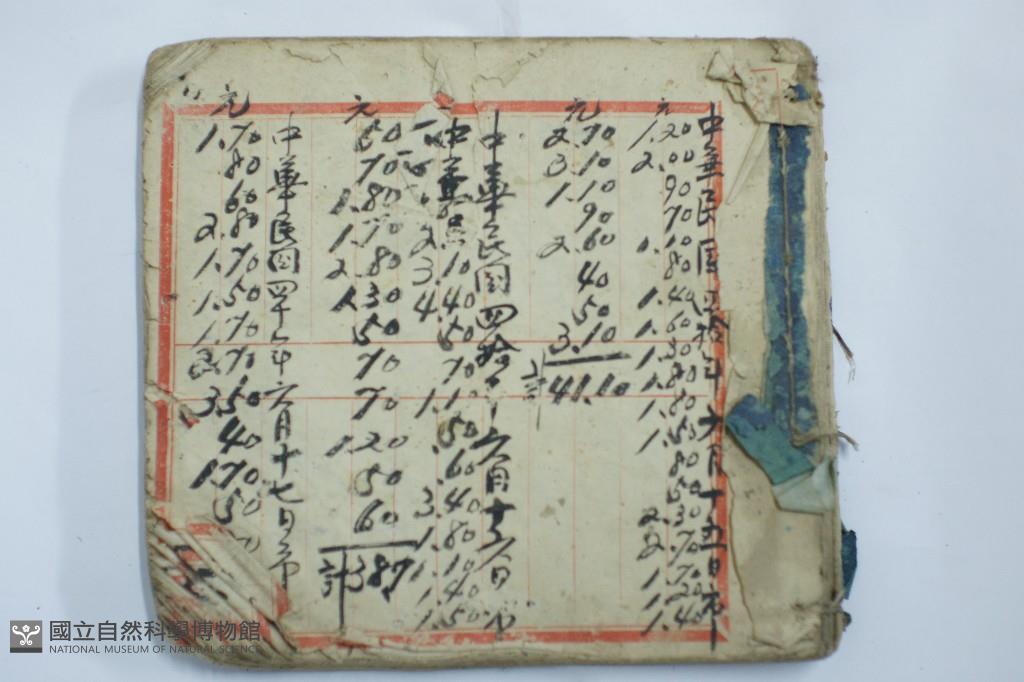 中華民国四拾年六月十五日元
元
1.20
2.00
.90
.70
0.10
.80
1.40
1.60
1.30
1.80
1.80
1.50
.80
.50
2.30
2.70
1.70
1.20
1.40
元
2.70
3.10
1.10
.90
2.60
.40
.50
3.10
計41.10
中華民國四拾年六月十六日
中華民
2
3.10
4.40
.50
.70
1.10
.50
.60
3.40
1.80
1.10
1.40
1.50
元
.50
.70
1.80
1.70
2.80
1.30
.50
.70
.70
1.20
.50
.60
計387
中華民国四十年六月十七日
元
1.70
.80
.60
2.80
1.70
1.50
1.70
3.50
.40
1.70
.50
國立自然科學博物館
NATIONAL MUSEUM OF NATURAL SCIENCE